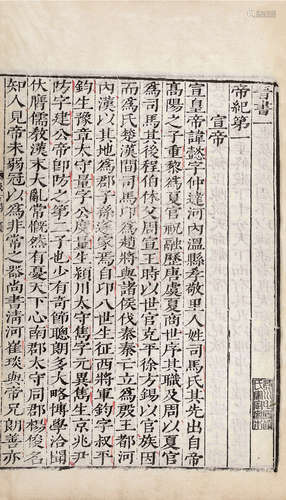 晉書一
帝紀第一
宣帝
宣皇帝諱懿字仲達河內溫縣孝敬里人姓司馬氏其先出自帝
高陽之子重黎為夏官祝融歷唐虞夏商世序其職及周以夏官
為司馬其後程伯休父周宣王時以世官克平徐方錫以官族因
而為氏楚漢間司馬卬為趙將與諸侯伐秦秦亡立為殷王都河
內漢以其地為郡子孫遂家焉自卬八世生征西將軍鈞字叔平
鈞生豫章太守量字公度量生潁川太守雋字元異雋生京兆尹
防字建公帝即防之第二子也少有奇節聰朗多大略博學洽聞
伏膺儒教漢末大亂常慨然有憂天下心南郡太守同郡楊俊名
知人見帝未弱冠以為非常之器尚書清河崔琰與帝兄朗善亦